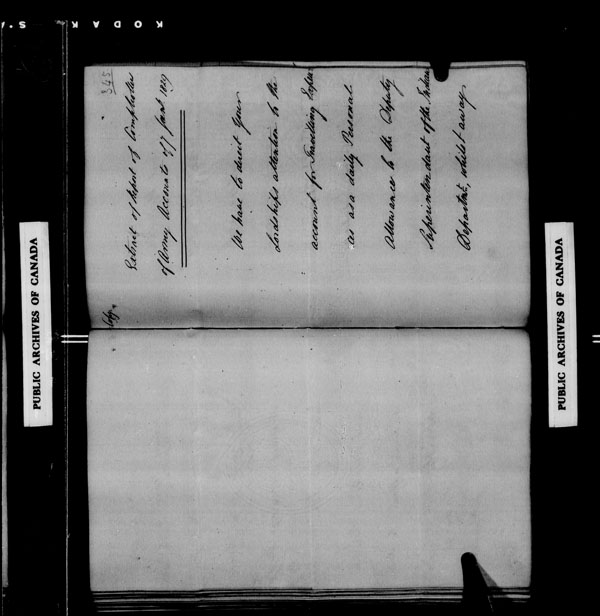 KODAK S.A
345
Copy.
Extract of Report of Comptroller
of Army Accounts of 7 Janr 1829
We have to direct Your
Lordships attention to the
account for Travelling Expen
as as a daily Personal
Allowance to the Deputy
Superintendant of the Indian
Departmt, whilst away
PUBLIC ARCHIVES OF CANADA
PUBLIC ARCHIVES OF CANADA